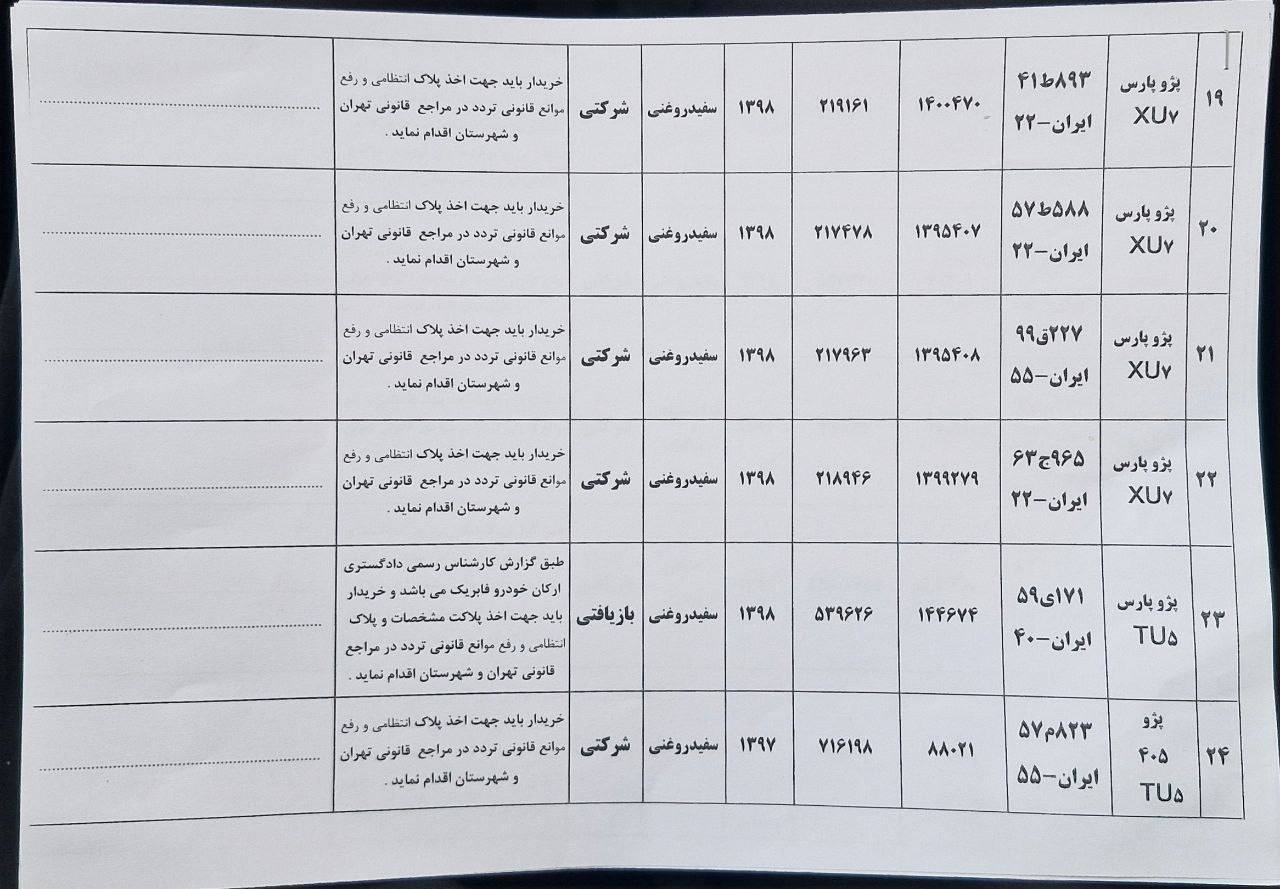 ۱۹
پژو پارس
XU۷
۸۹۳ط۴۱
ایران-۲۲
۱۴۰۰۴۷۰
۲۱۹۱۶۱
۱۳۹۸
سفیدروغنی
شرکتی
خریدار باید جهت اخذ پلاک انتظامی و رفع
موانع قانونی تردد در مراجع قانونی تهران
و شهرستان اقدام نماید .
۲۰
پژو پارس
XU۷
۵۸۸ط۵۷
ایران-۲۲
۱۳۹۵۴۰۷
۲۱۷۴۷۸
۱۳۹۸
سفیدروغنی
شرکتی
خریدار باید جهت اخذ پلاک انتظامی و رفع
موانع قانونی تردد در مراجع قانونی تهران
و شهرستان اقدام نماید .
۲۱
پژو پارس
XU۷
۲۲۷ق۹۹
ایران-۵۵
۱۳۹۵۴۰۸
۲۱۷۹۶۳
۱۳۹۸
سفیدروغنی
شرکتی
خریدار باید جهت اخذ پلاک انتظامی و رفع
موانع قانونی تردد در مراجع قانونی تهران
و شهرستان اقدام نماید .
۲۲
پژو پارس
XU۷
۹۶۵ج۶۳
ایران-۲۲
۱۳۹۹۲۷۹
۲۱۸۹۴۶
۱۳۹۸
سفیدروغنی
شرکتی
خریدار باید جهت اخذ پلاک انتظامی و رفع
موانع قانونی تردد در مراجع قانونی تهران
و شهرستان اقدام نماید .
۲۳
پژو پارس
TU۵
۱۷۱ی۵۹
ایران-۴۰
۱۴۴۶۷۴
۵۳۹۶۲۶
۱۳۹۸
سفیدروغنی
بازیافتی
طبق گزارش کارشناس رسمی دادگستری
ارکان خودرو فابریک می باشد و خریدار
باید جهت اخذ پلاکت مشخصات و پلاک
انتظامی و رفع موانع قانونی تردد در مراجع
قانونی تهران و شهرستان اقدام نماید .
۲۴
پژو
۴۰۵
TU۵
۸۲۳م۵۷
ایران-۵۵
۸۸۰۲۱
۷۱۶۱۹۸
۱۳۹۷
سفیدروغنی
شرکتی
خریدار باید جهت اخذ پلاک انتظامی و رفع
موانع قانونی تردد در مراجع قانونی تهران
و شهرستان اقدام نماید .